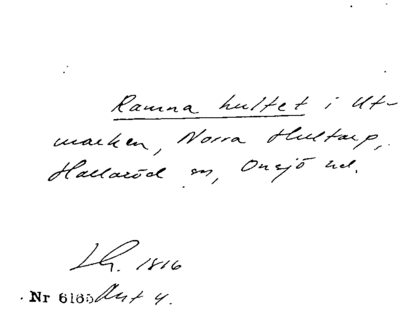 Ramna hultet i Ut-
marken, Norra Hultarp,
Hallaröd sn, Onsjö hd.
Lh. 1816
Nr 6165 Akt 4.